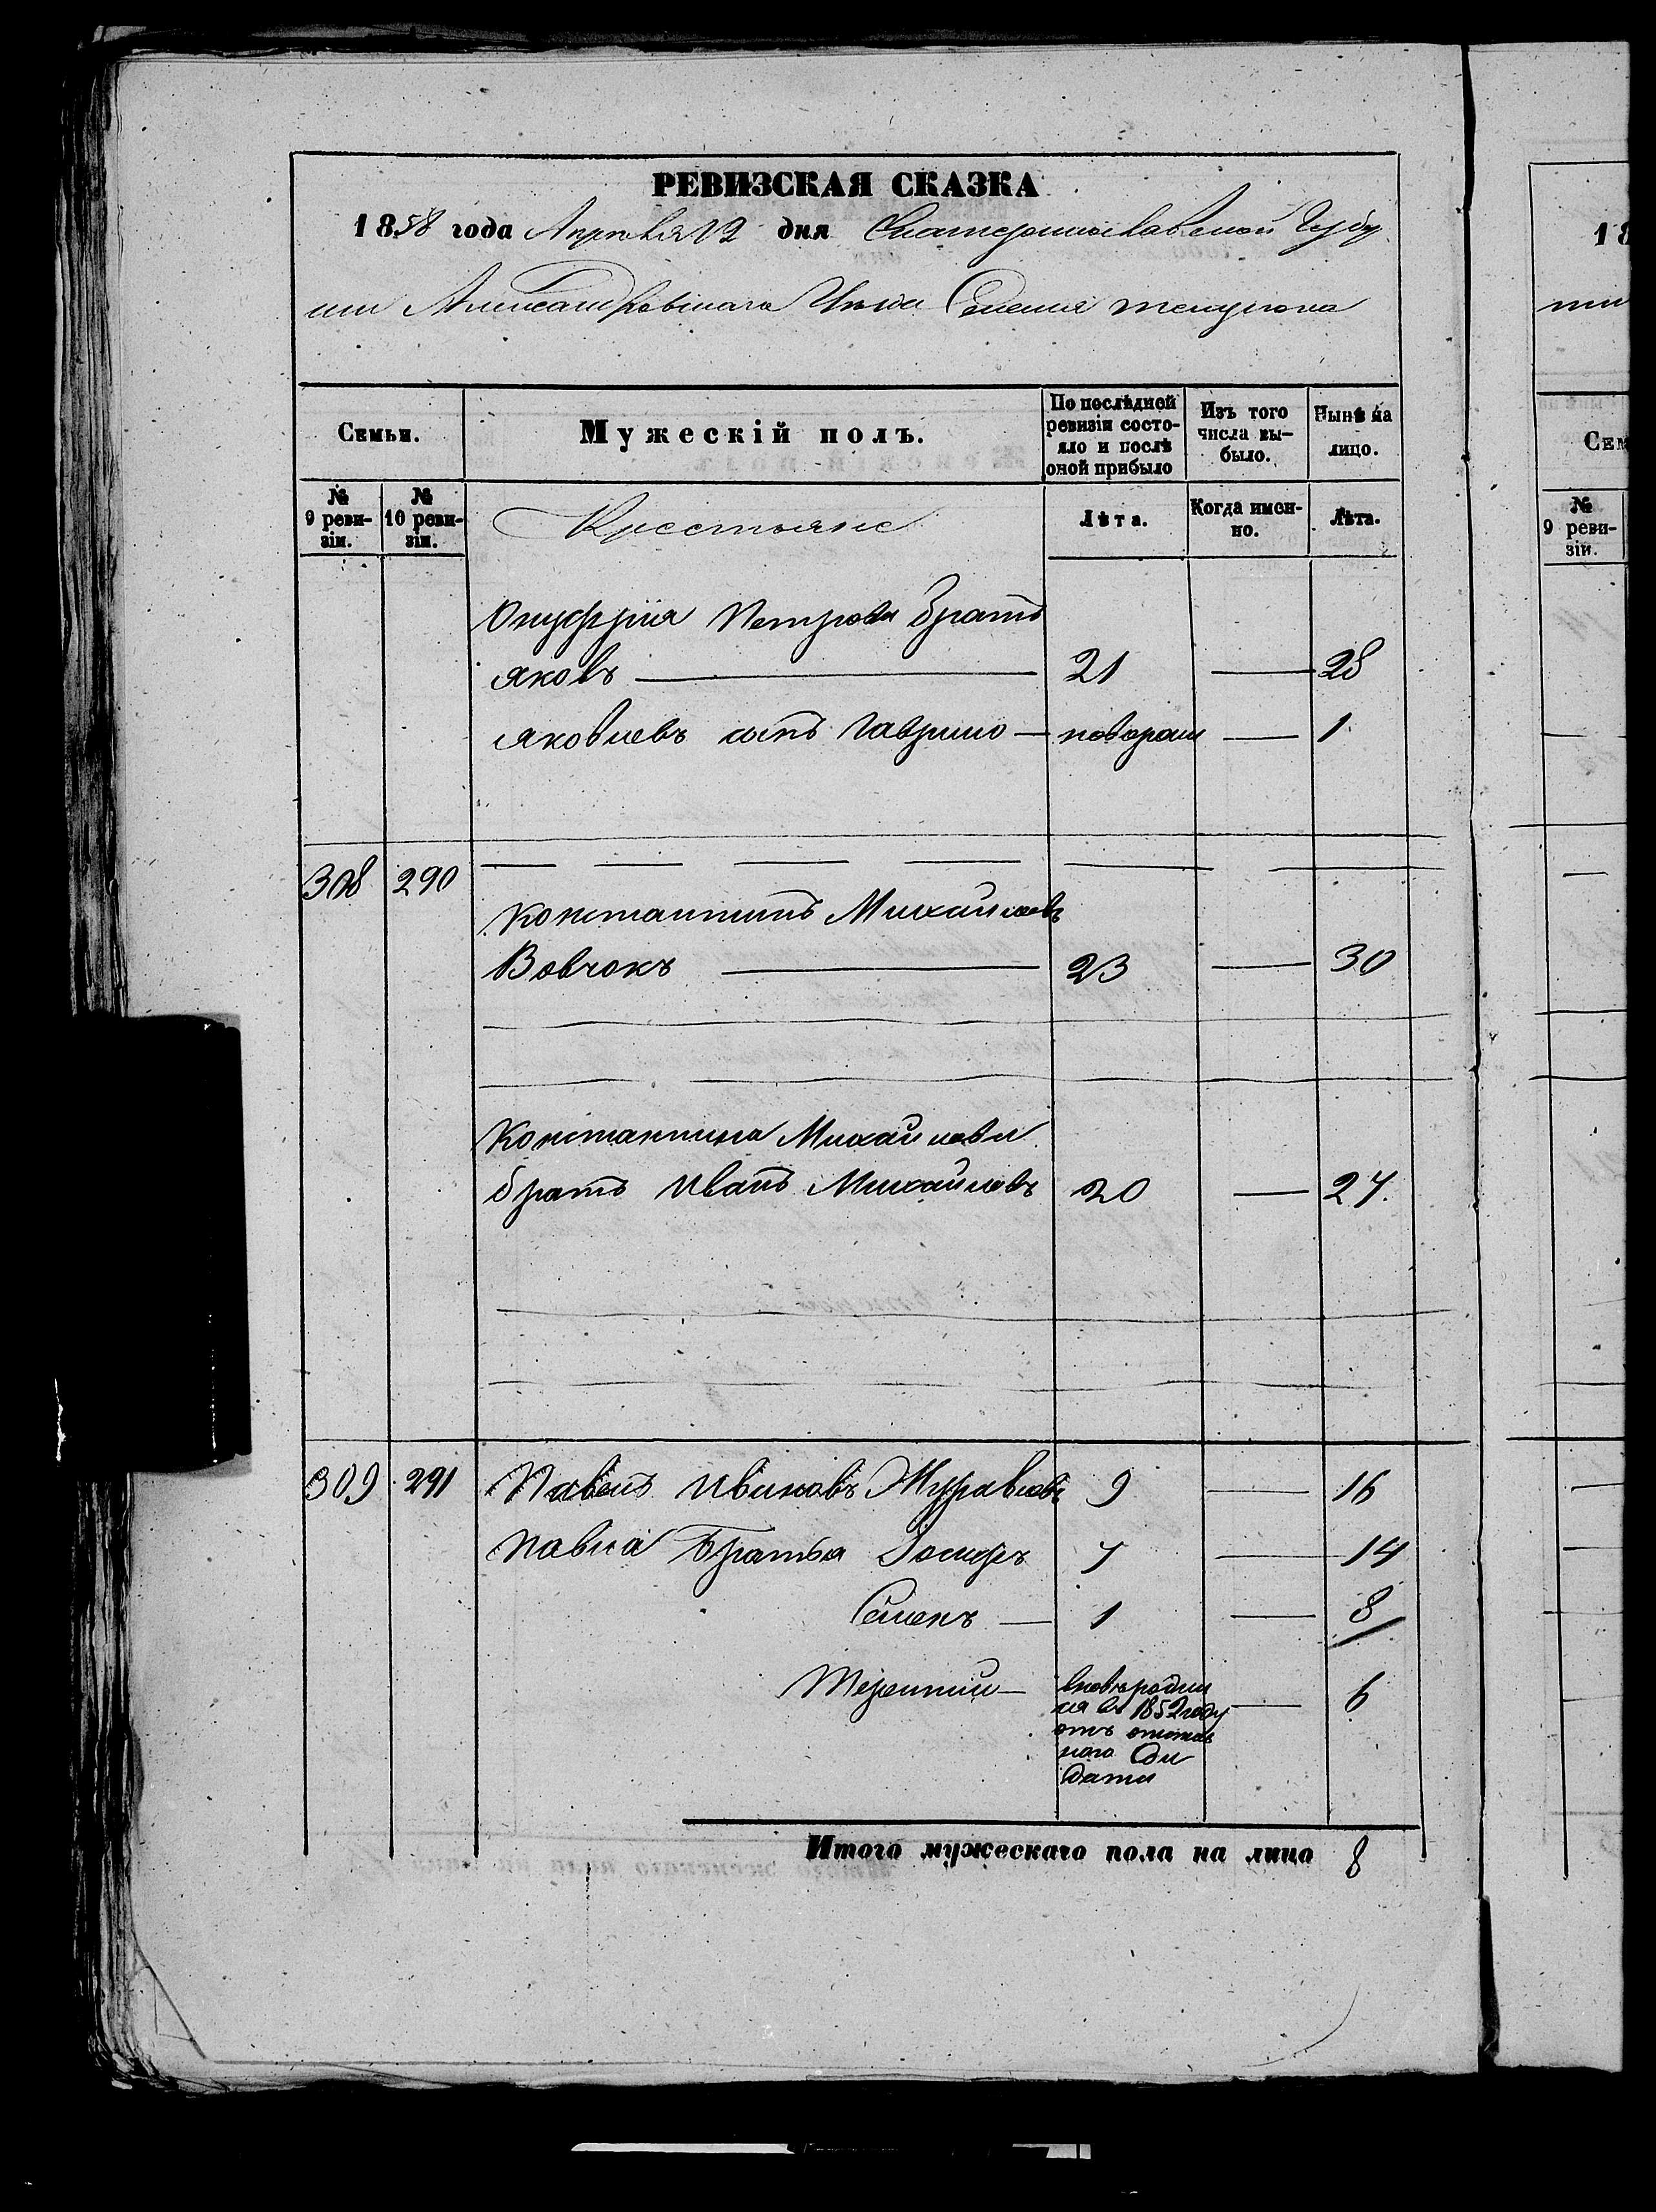 РЕВИЗСКАЯ СКАЗКА
1858 года Апрѣля 12 дня Екатеринославской Губер
нии Александровскаго Уѣзда Селения
Семьи.
Мужескій полъ.
По послѣдней ревизіи состо-
яло и послѣ
оной прибыло
Изъ того
числа вы-
было.
Нынѣ на
лицо.
№
9 реви-
зіи.
№
10 реви-
зіи.
Крестьяне
Лѣта.
Когда имен-
но.
Лѣта.
Онуфрия Петрова братъ
Яковъ 21 — 28
Яковлевъ сынъ Гаврило — новорож — 1
308 290
Константинъ Михайловъ
Вовчокъ — 23 — 30
Константина Михайлова
братъ Иванъ Михайловъ 20 — 27.
309 291 Павелъ Ивановъ Журавлевъ 9 — 16
Павла Братья Іосифъ 7 — 14
Семенъ — 1 — 8
Терентий — вновь родил
ся въ 1852 году
отъ
— 6
Итого мужескаго пола на лицо 8
18
нии
Сем
№
9 реви-
зіи.